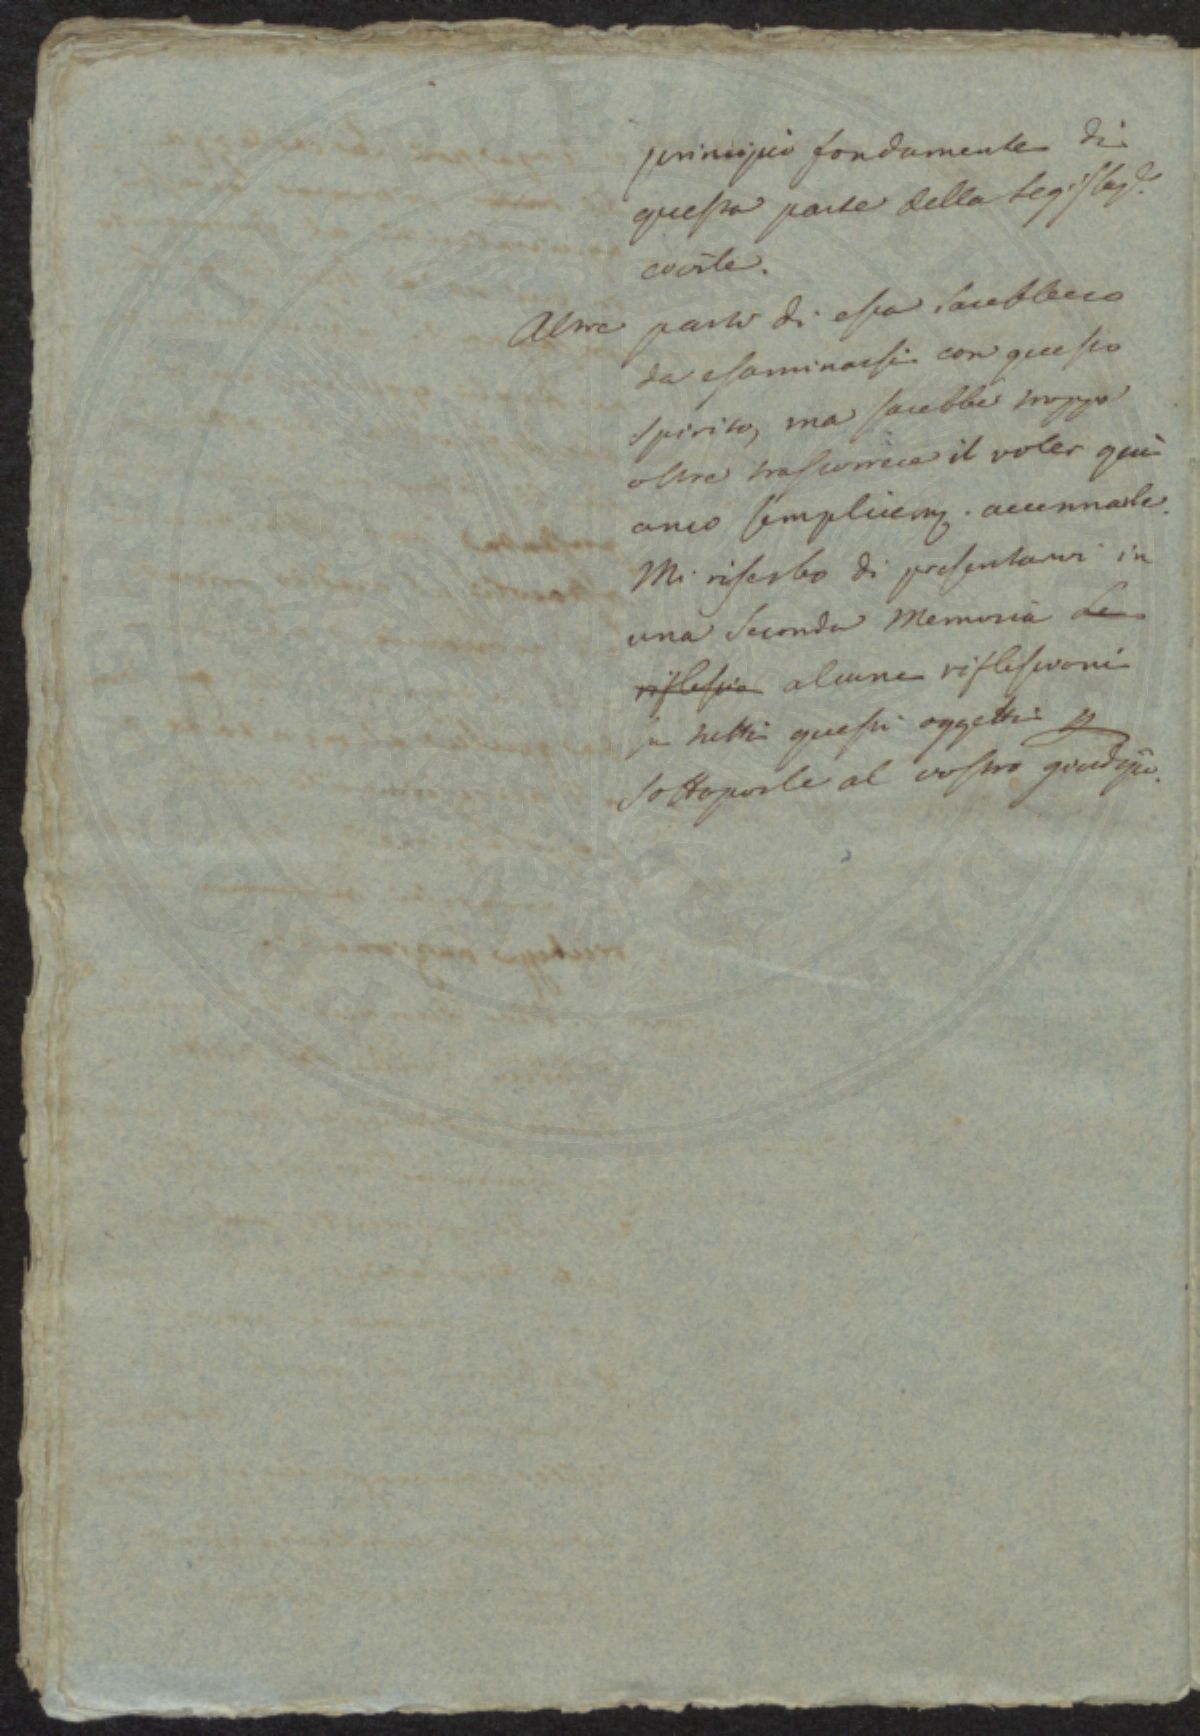 principio fondamentale di
questa parte della Legislaz.e
civile.
Altre parti di essa sarebbero
da esaminarsi con questo
spirito, ma sarebbe troppo
oltre trascorrere il voler quì
anco semplicem. accennarle.
Mi riserbo di presentarvi in
una seconda Memoria le
riflessio alcune riflessioni
su tutti questi oggetti p
sottoporle al vostro giudizio.